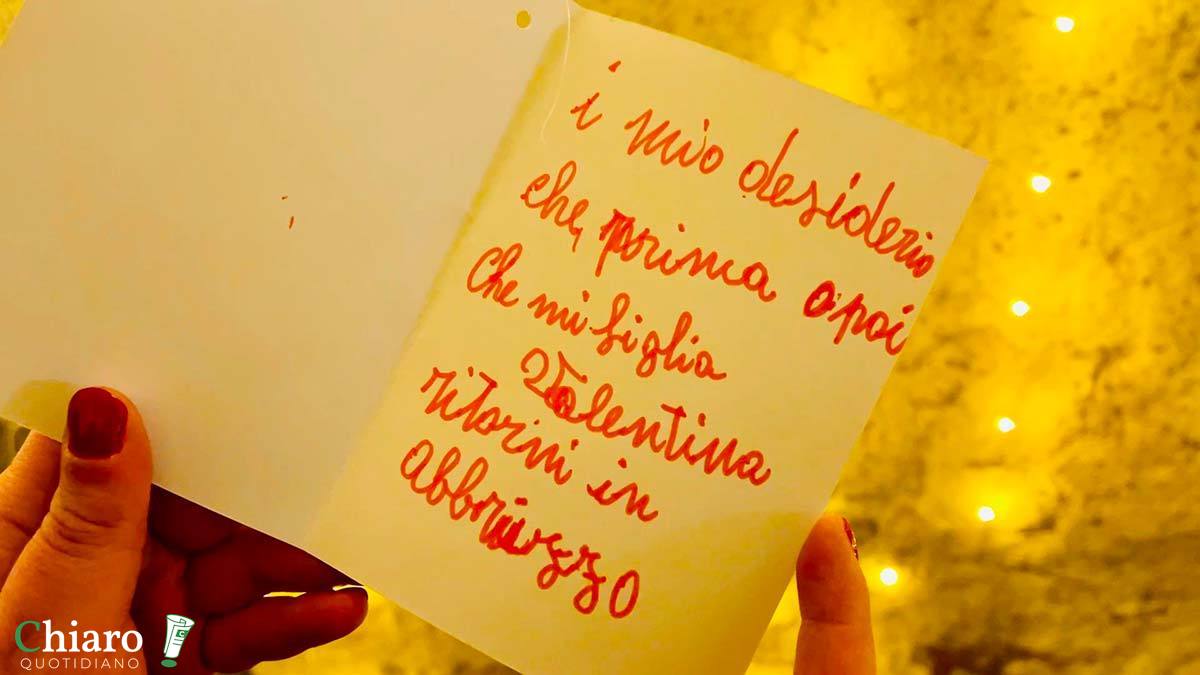 i mio desiderio
che, prima o poi
Che mi figlia
Valentina
ritorni in
abbruzzo
Chiaro
QUOTIDIANO